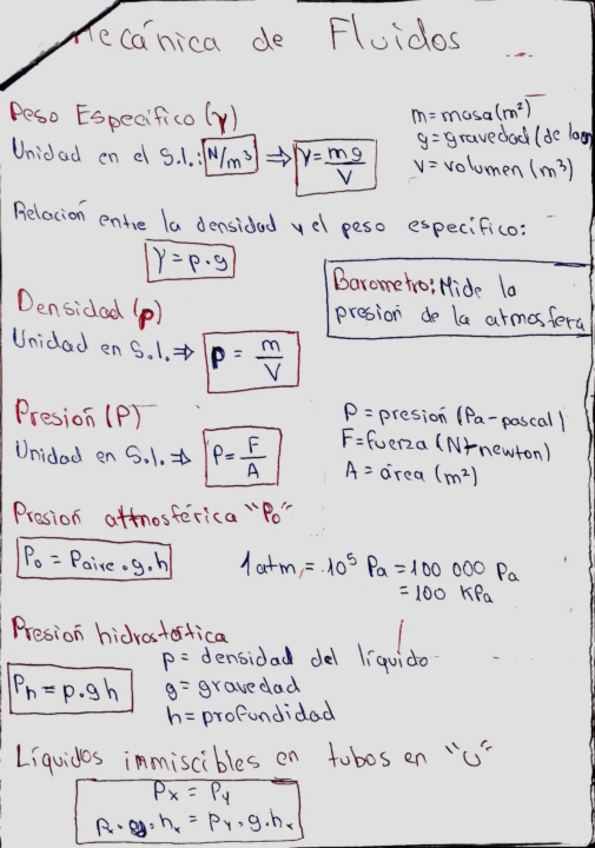 Mecánica de Fluidos
Peso Específico (γ)
Unidad en el S.I.: N/m³ ⇒ γ = mg/V
m = masa (m²)
g = gravedad (de la
V = volumen (m³)
Relación entre la densidad y el peso específico:
γ = ρ · g
Barometro: Mide la
presión de la atmosfera
Densidad (ρ)
Unidad en S.I. ⇒ ρ = m/V
Presión (P)
Unidad en S.I. ⇒ P = F/A
P = presión (Pa-pascal)
F = fuerza (N-newton)
A = área (m²)
Presión atmosférica "P₀"
P₀ = Paire · g · h
1 atm = 10⁵ Pa = 100 000 Pa
= 100 KPa
Presión hidrostática
Ph = ρ · g h
ρ = densidad del líquido
g = gravedad
h = profundidad
Líquidos immiscibles en tubos en "U"
Px = Py
ρx · g · hx = ρy · g · hx